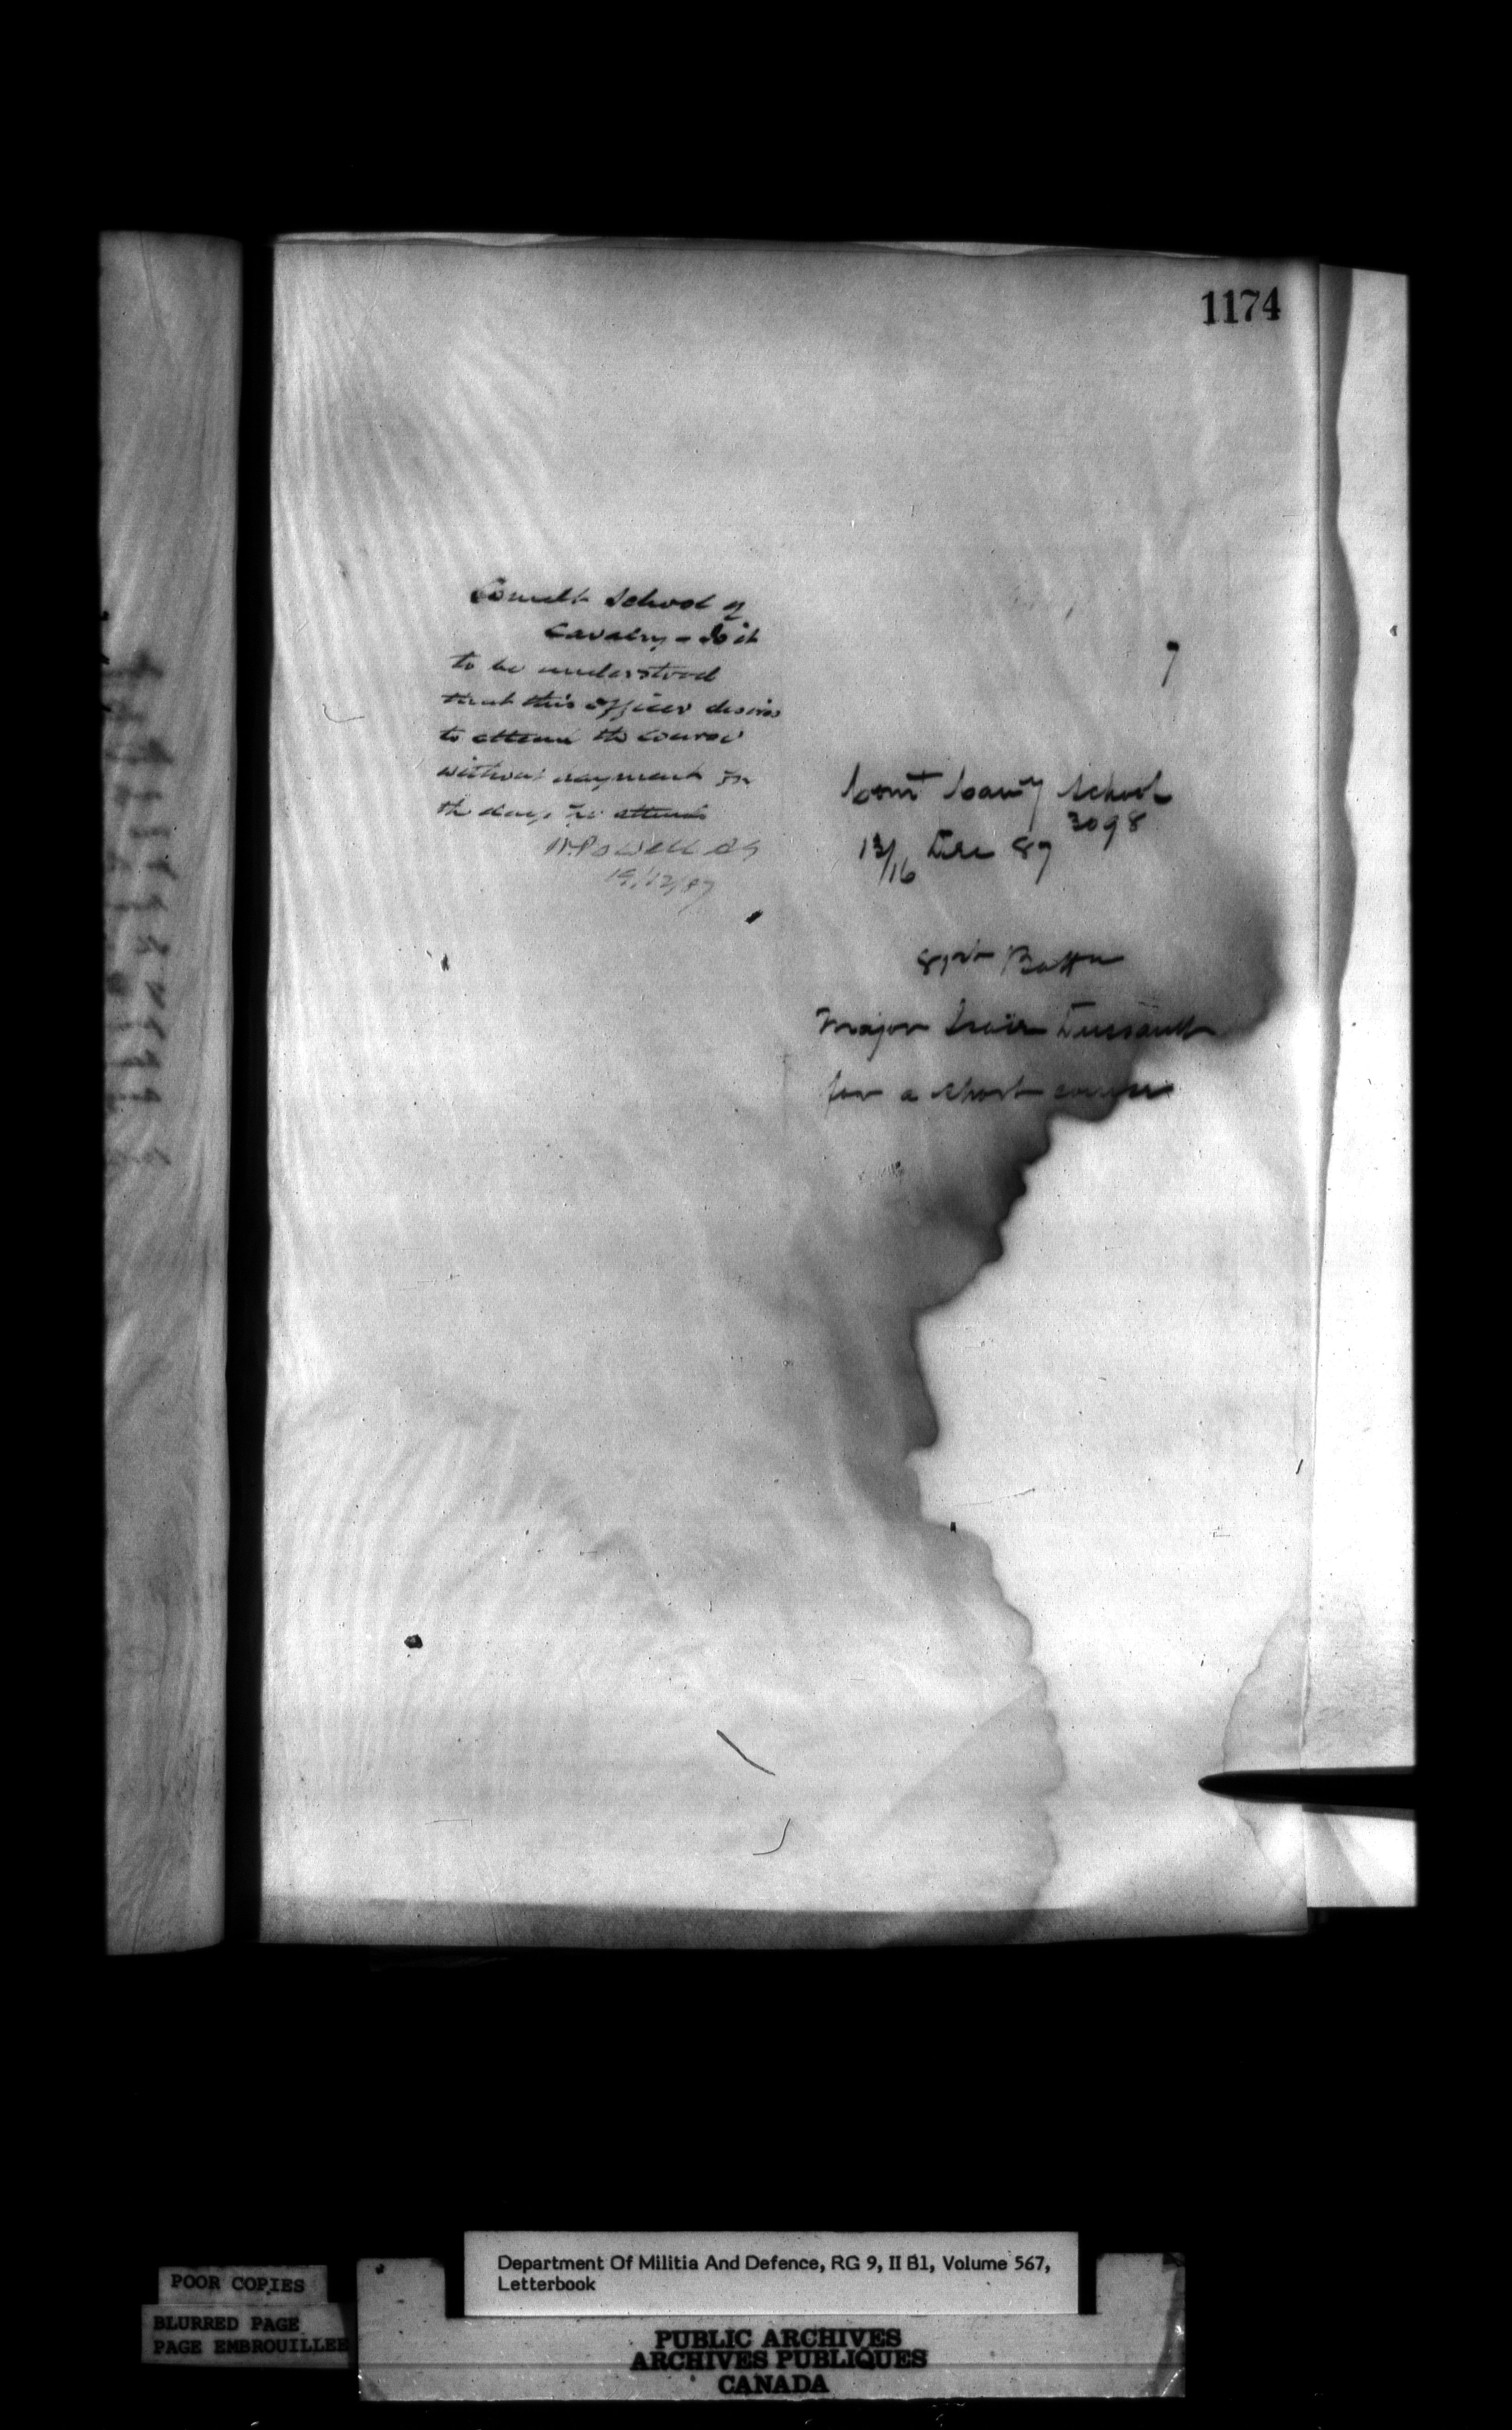 1174
Comdt School of
Cavalry - Is it
to be understood
that this officer desires
to attend the course
without payment for
the days he attends
W. Powell AG
19/12/87
7
Comt Cavy School
3098
13/16 Dec 87
87th Battn
Major Dussault
for a short course
Department Of Militia And Defence, RG 9, II B1, Volume 567,
Letterbook
POOR COPIES
BLURRED PAGE
PAGE EMBROUILLEE
PUBLIC ARCHIVES
ARCHIVES PUBLIQUES
CANADA